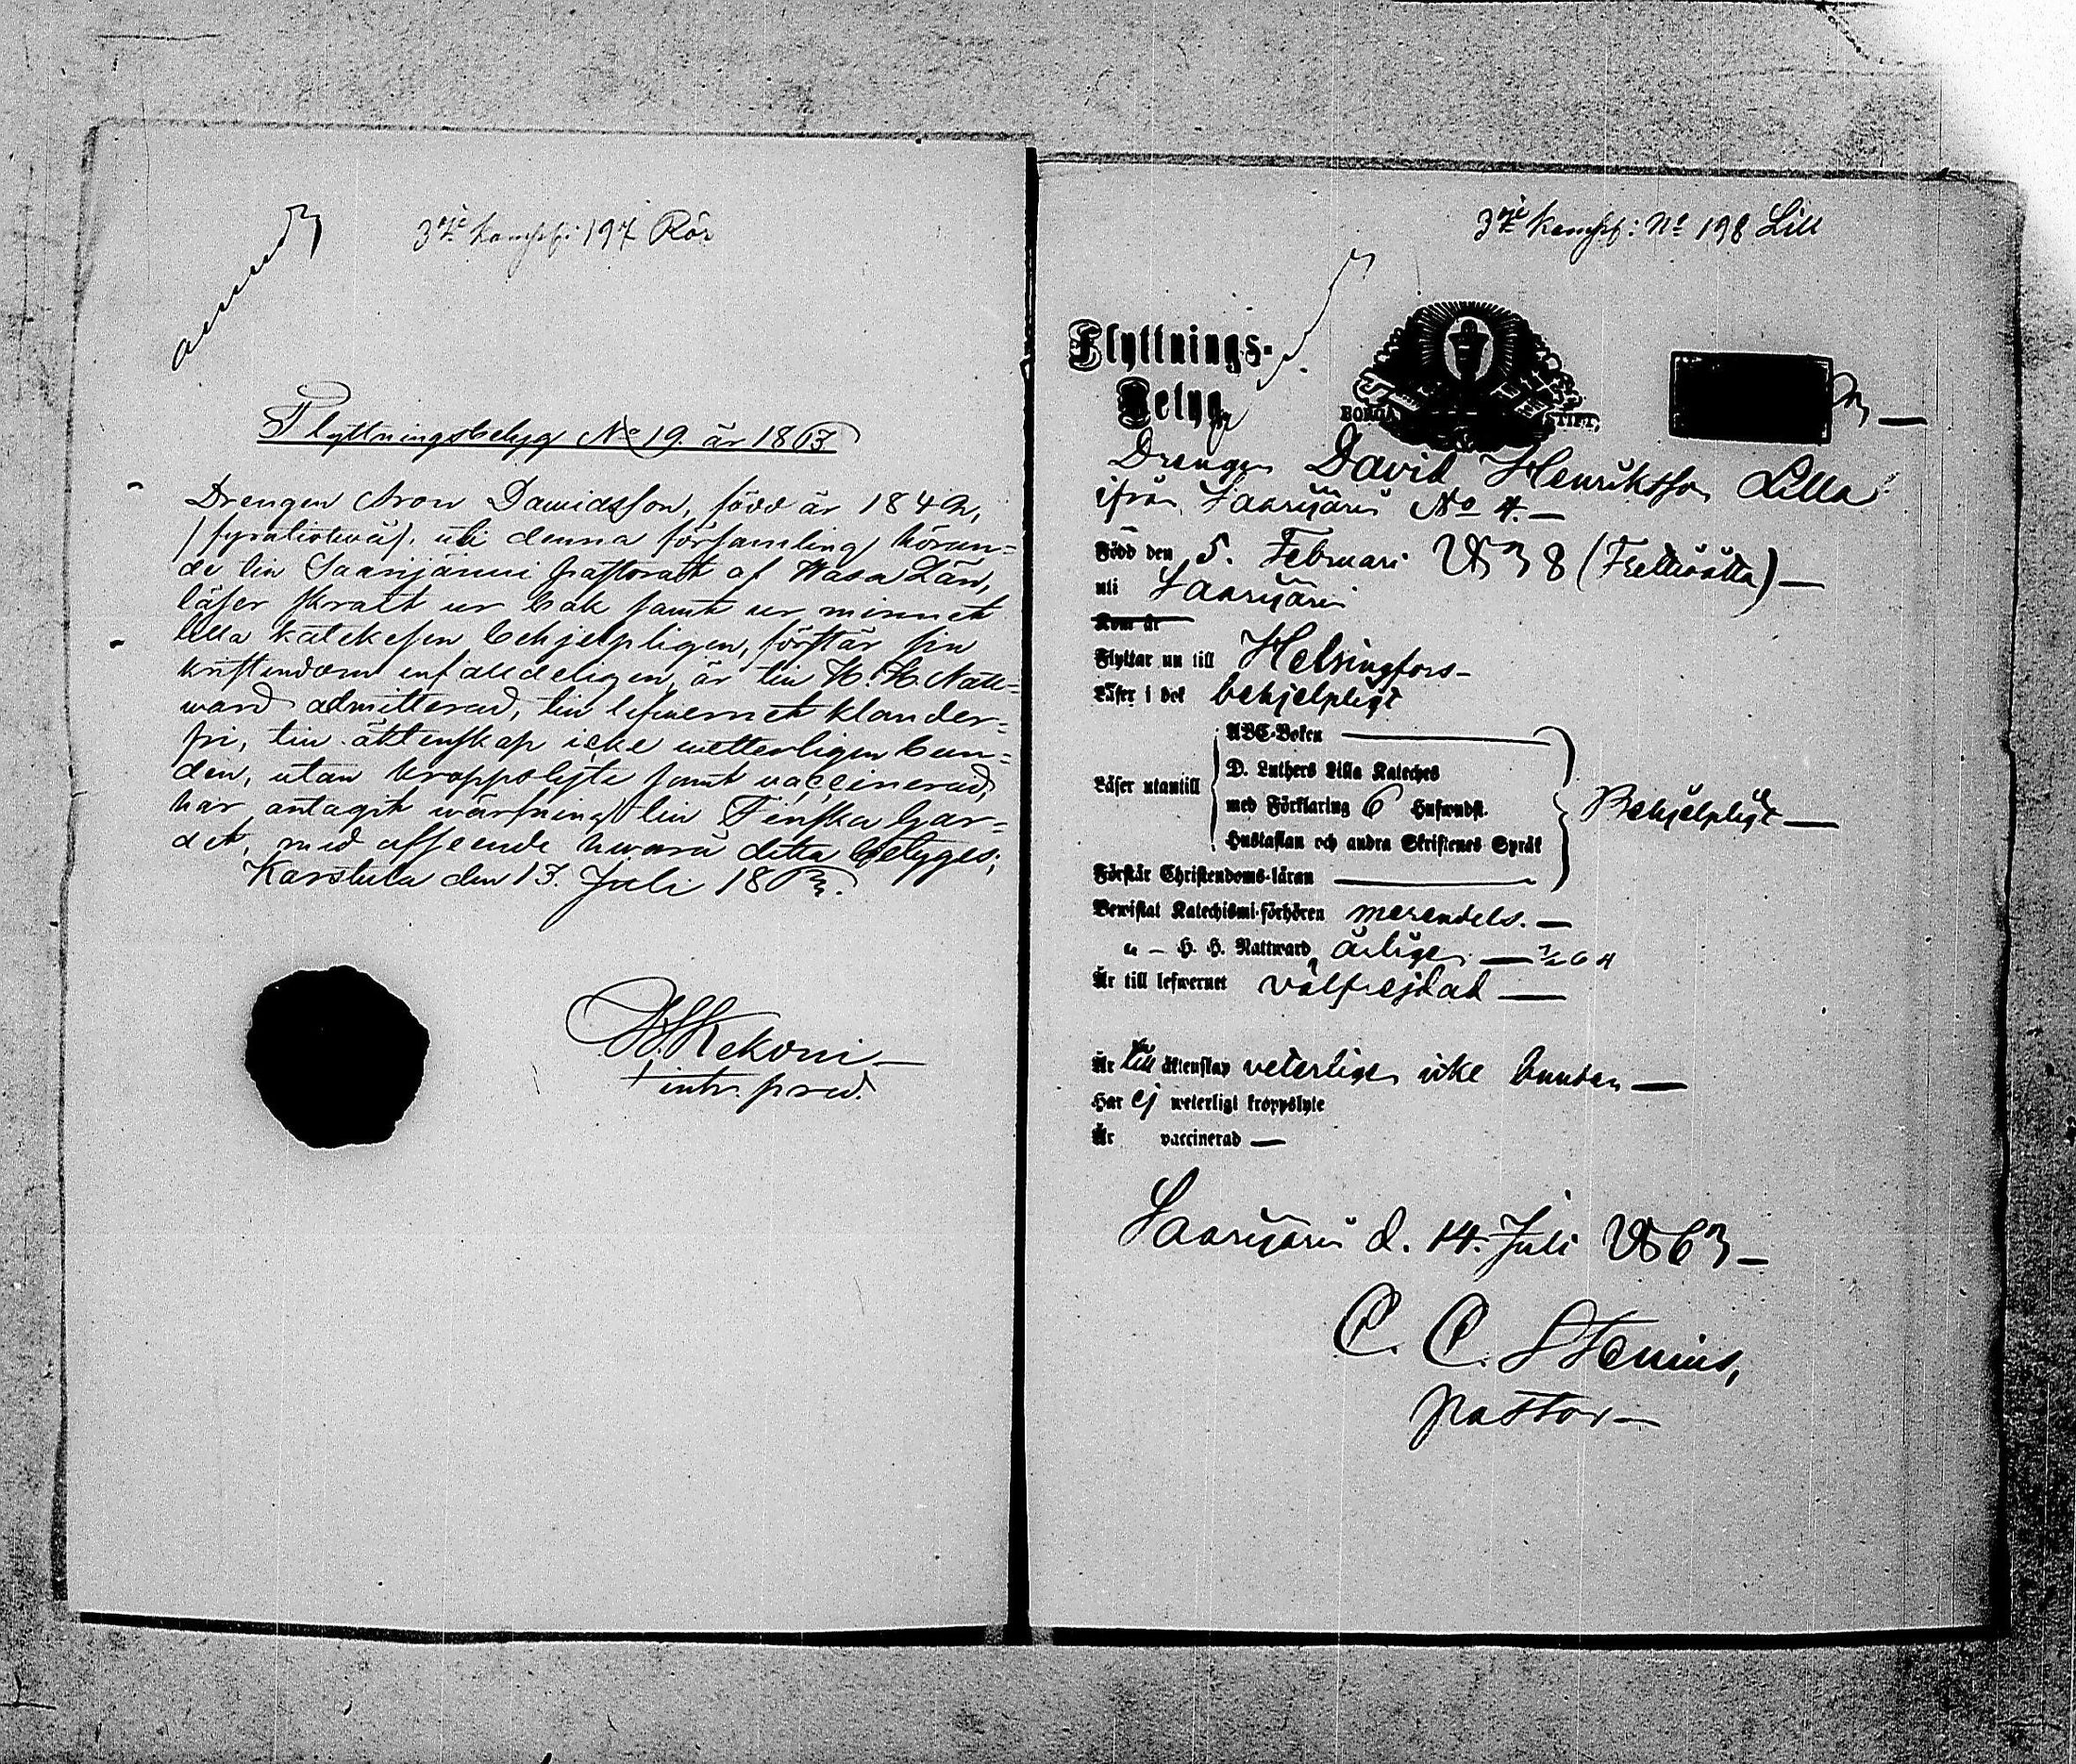 3dje kompf: 197 Rör
Flyttningsbetyg No 19. år 1863
Drengen Aron Davidsson, född år 1842,
/fyratiotvå/, uti denna församling, höran=
de till Saarijärvi pastorat af Wasa Län,
läser svatt ur bok samt ur minnet
lilla katekesen behjelpligen, förstår sin
kristendom enfaldeligen, är till H. H. Natt=
ward admitterad, till lefvernet klander=
fri, till äktenskap icke vetterligen bun=
den, utan kroppslyte samt vaccinerad,
har antagit värfning till Finska Gar=
det, med afseende hvarå detta betygas;
Karstula den 13. Juli 1863.
Kekoni
intr. pred.
3dje kompf: No 198 Lill
Flyttnings-
Betyg
BORGÅ STIFT,
Drengen David Henriksson Lilla
ifrån Saarijärvi No 4.
Född den 5. Februari 1838 (Trettioåtta)
uti Saarijärvi
Kom år
Flyttar nu till Helsingfors
Läser i bok behjelpligt
ABC-Boken
D. Luthers Lilla Kateches
Läser utantill
med Förklaring 6 Hufwudst.
Behjelpligt
Hustaflan och andra Skriftenes Språk
Förstår Christendoms-läran
Bewistat Katechismi-förhören merendels.
" - H. H. Nattward årligen 7/6
Är till lefwernet välfrejdad
Är till äktenskap veterligen icke bunden
Har ej weterligt kroppslyte
Är vaccinerad
Saarijärvi d. 14. Juli 1863
C. C. Stenius,
pastor